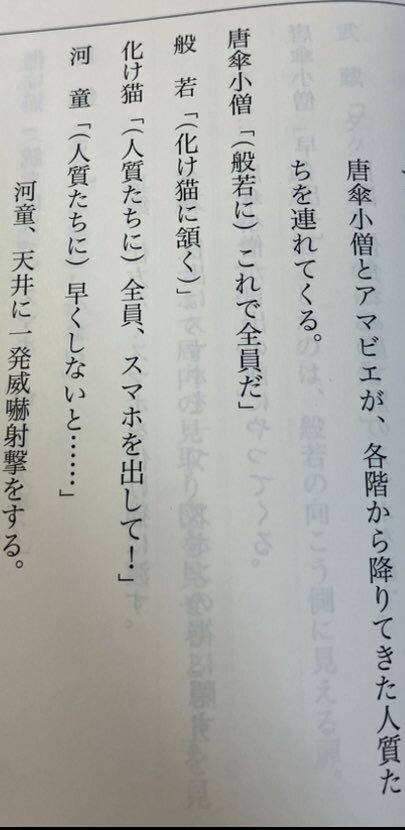 唐傘小僧とアマビエが、各階から降りてきた人質た
ちを連れてくる。
唐傘小僧「(般若に)これで全員だ」
般　若「(化け猫に頷く)」
化け猫「(人質たちに)全員、スマホを出して!」
河　童「(人質たちに)早くしないと……」
河童、天井に一発威嚇射撃をする。